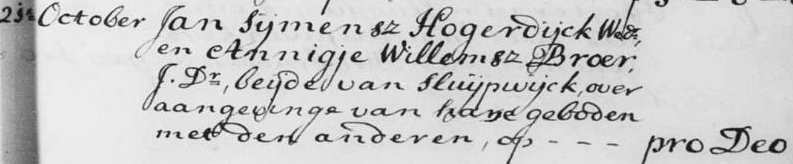 23e October Jan Sijmensz Hogerdijck Wedr,
en Annigje Willemsz Broer,
J. Dr, beijde van Sluijpwijck, over
aangevinge van hare geboden
met den anderen, op - - - pro Deo